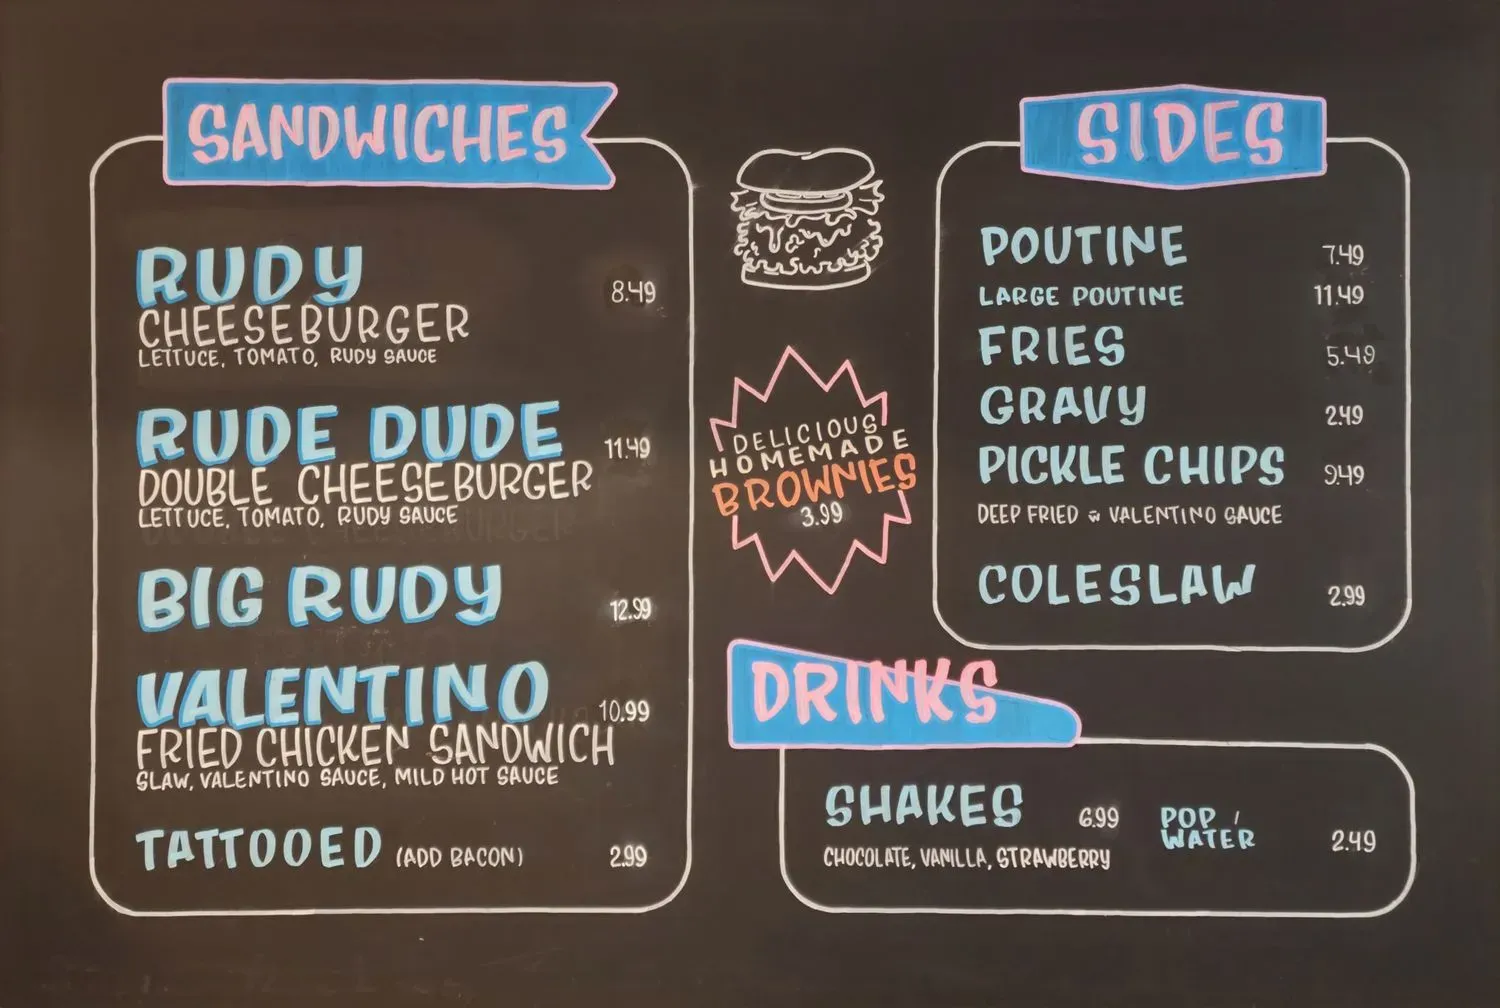 SANDWICHES
RUDY
8.49
CHEESEBURGER
LETTUCE, TOMATO, RUDY SAUCE
RUDE DUDE
11.49
DOUBLE CHEESEBURGER
LETTUCE, TOMATO, RUDY SAUCE
BIG RUDY
12.99
VALENTINO
10.99
FRIED CHICKEN SANDWICH
SLAW, VALENTINO SAUCE, MILD HOT SAUCE
TATTOOED (ADD BACON) 2.99
DELICIOUS
HOMEMADE
BROWNIES
3.99
SIDES
POUTINE 7.49
LARGE POUTINE 11.49
FRIES 5.49
GRAVY 2.49
PICKLE CHIPS 9.49
DEEP FRIED w VALENTINO SAUCE
COLESLAW 2.99
DRINKS
SHAKES 6.99
CHOCOLATE, VANILLA, STRAWBERRY
POP /
WATER 2.49